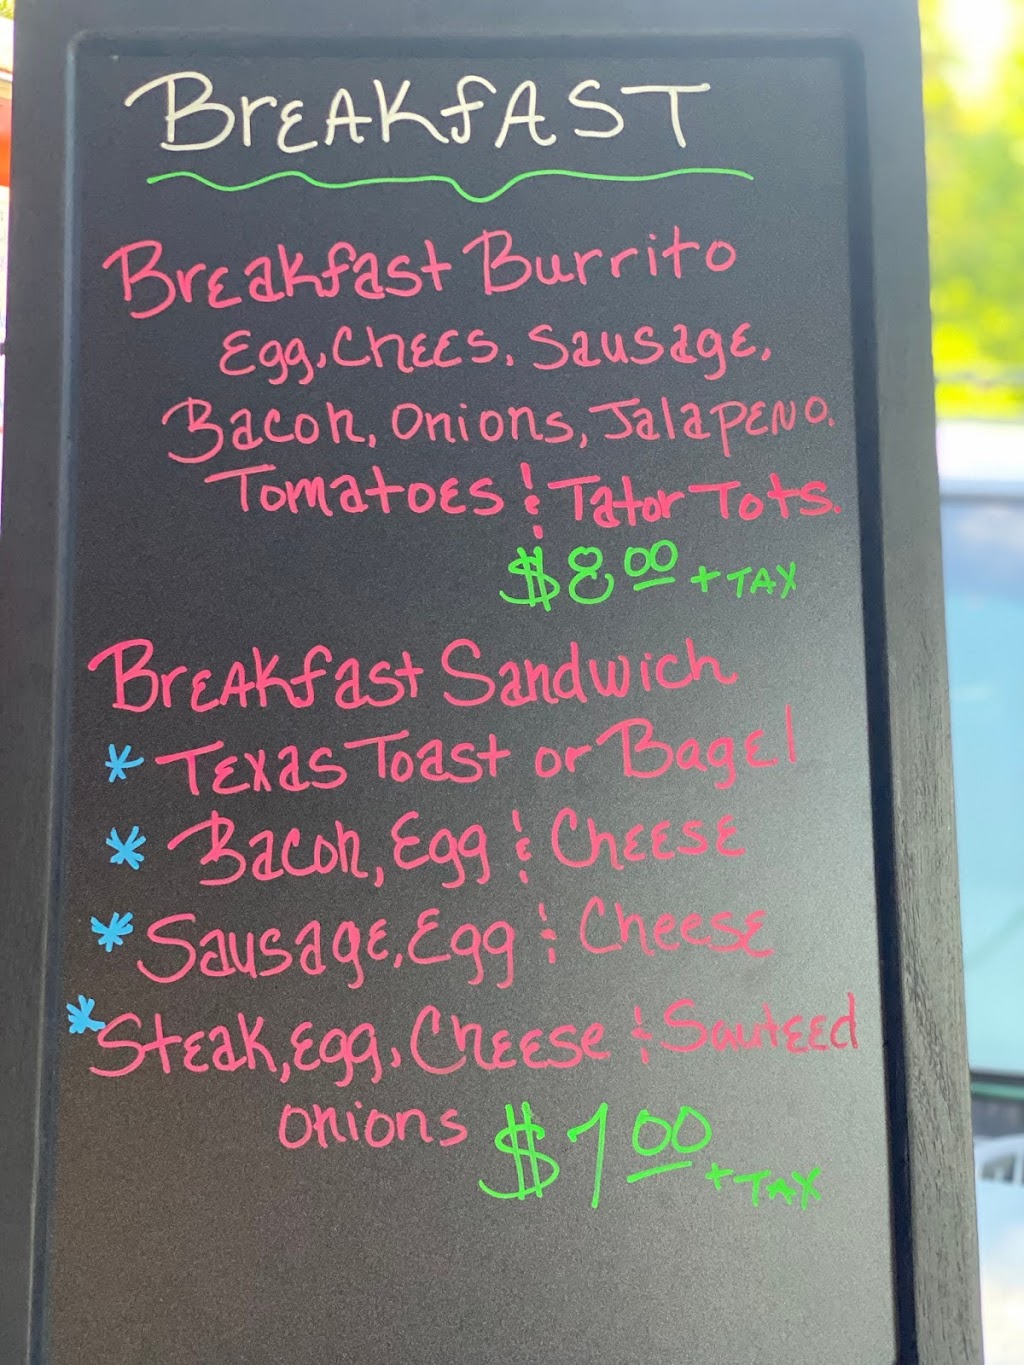 BrEAKfAST
Breakfast Burrito
Egg, Chees, Sausage,
Bacon, Onions, Jalapeno,
Tomatoes & Tator Tots.
$8.00 + TAX
Breakfast Sandwich
* Texas Toast or Bagel
* Bacon, Egg & Cheese
* Sausage, Egg & Cheese
* Steak, Egg, Cheese & Sauteed
onions $7.00 + TAX